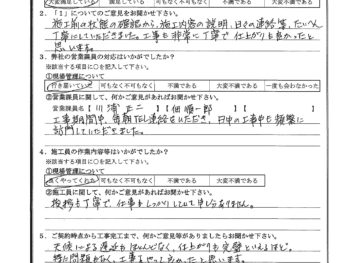 大変満足している　満足している　可もなく不可もなく　不満である　大変不満である
2．「1」についてのご意見をお聞かせ下さい。
施工前の状態の確認から、施工内容の説明、日々の連絡等、たいへん
丁寧にしていただきました。工事も非常に丁寧で仕上がりも良かったと
思います。
3．弊社の営業課員の対応はいかがでしたか？
※該当する項目に○を記入して下さい。
①現場管理について
行き届いていた　可もなく不可もなく　不満である　大変不満である　一度も会わなかった
②営業課員に関して、何かご意見があればお聞かせ下さい。
営業課員名【　　正二　】【　佃　順一郎　】【　　】
工事期間中、毎朝TEL連絡をいただき、日中の工事中も頻繁に
訪問していただきました。
4．施工員の作業内容等はいかがでしたか？
※該当する項目に○を記入して下さい。
①現場管理について
良くやってくれた　可もなく不可もなく　不満である　大変不満である
②施工員に関して、何かご意見があればお聞かせ下さい。
挨拶も丁寧で、仕事もしっかりしてして申し分ありません。
5．ご契約時点から工事完工まで、何かご意見等がありましたらお聞かせ下さい。
天候による遅延もほとんどなく、仕上がりも完璧といえるほど。
特に問題もなく、工事をやって良かったと思います。